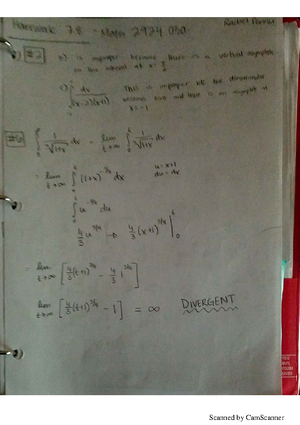 Homework 7.8 - Math 2924 030
#2 b) is improper because there is a vertical asymptote
on the interval at x =
c) ∫ dx / (x-2)(x+1) This is improper b/c the denominator
becomes zero and there is an asymptote at
x = -1
#6 ∫ 1/⁴√(1+x) dx = lim t→∞ ∫ 1/⁴√(1+x) dx
= lim t→∞ ∫ (1+x)^(-1/4) dx u = x+1
du = dx
∫ u^(-1/4) du
4/3 u^(3/4) → 4/3 (x+1)^(3/4) |₀ᵗ
= lim t→∞ [4/3 (t+1)^(3/4) - 4/3 1^(3/4)]
lim t→∞ [4/3 (t+1)^(3/4) - 1] = ∞ DIVERGENT
Scanned by CamScanner